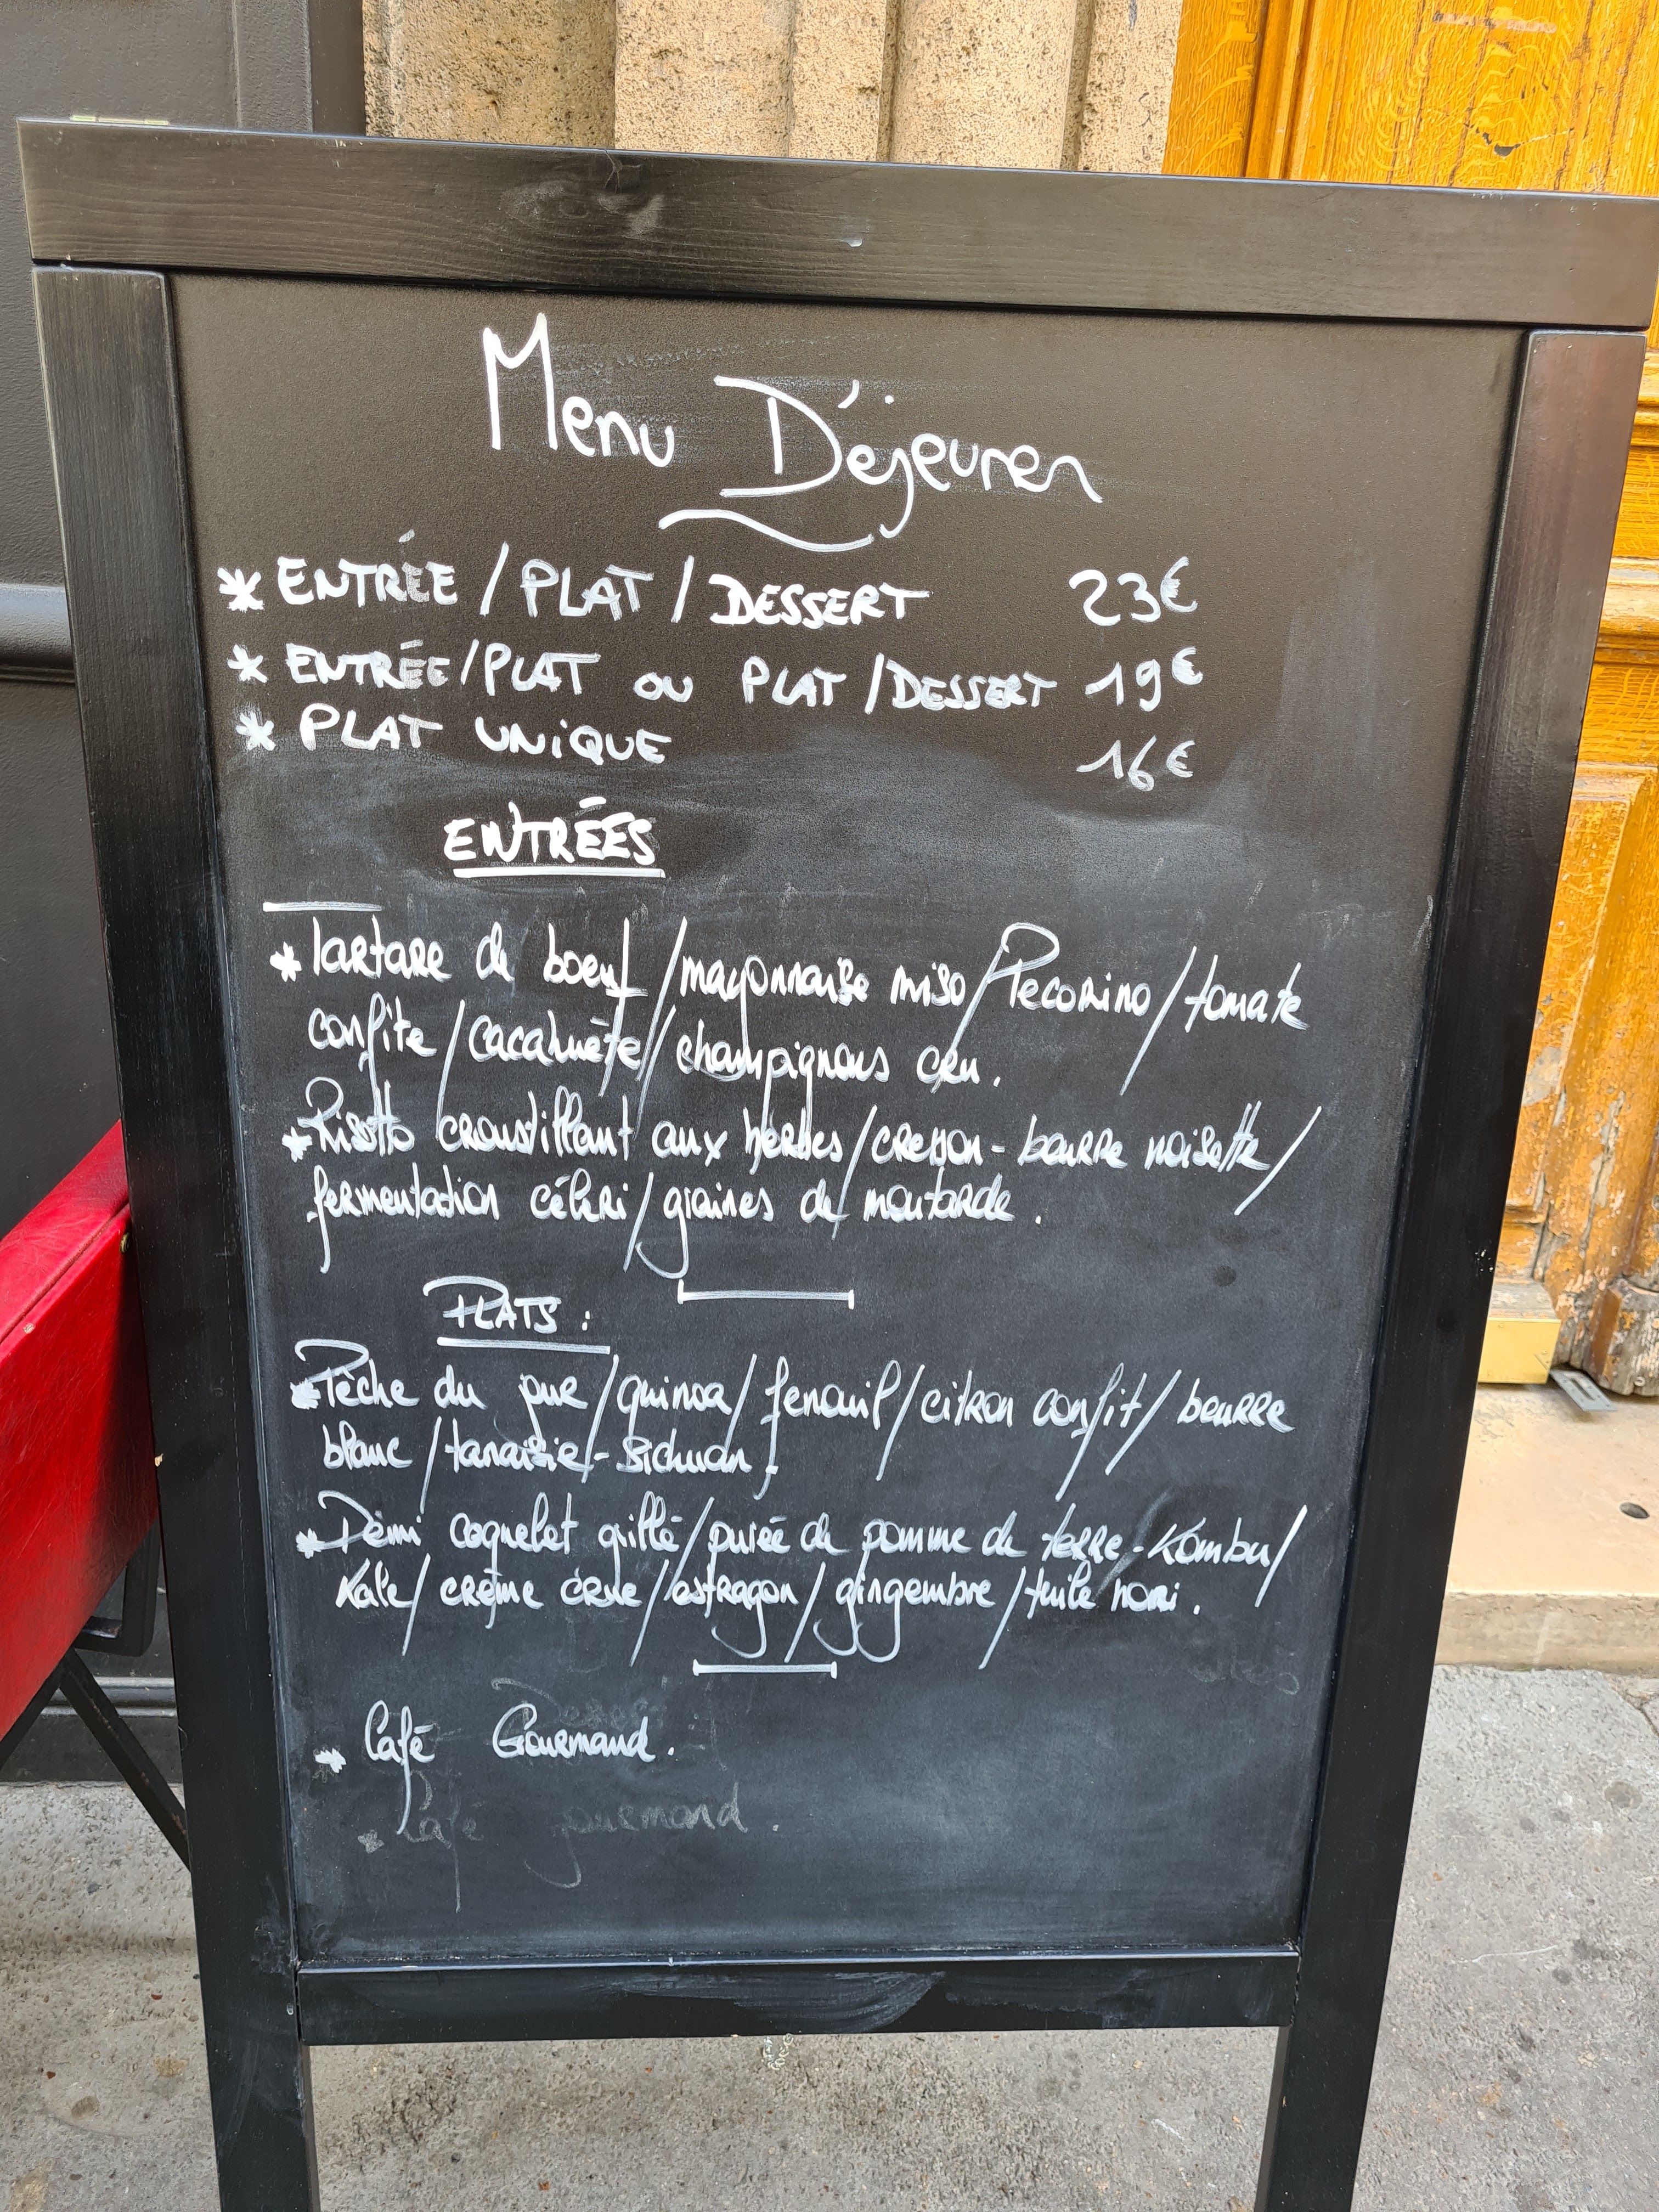 Menu Déjeuner
* ENTRÉE / PLAT / DESSERT 23€
* ENTRÉE/PLAT OU PLAT/DESSERT 19€
* PLAT UNIQUE 16€
ENTRÉES
* Tartare de boeuf / mayonnaise miso / Pecorino / tomate
confite / cacahuète / champignons cru.
* Risotto croustillant aux herbes / cresson - beurre noisette /
fermentation céleri / graines de moutarde.
PLATS :
* Pêche du jour / quinoa / fenouil / citron confit / beurre
blanc / tanaisie - Sichuan.
* Demi coquelet grillé / purée de pomme de terre - Kombu /
Kale / crème crue / estragon / gingembre / tuile nori.
* Café Gourmand.
* Café gourmand.